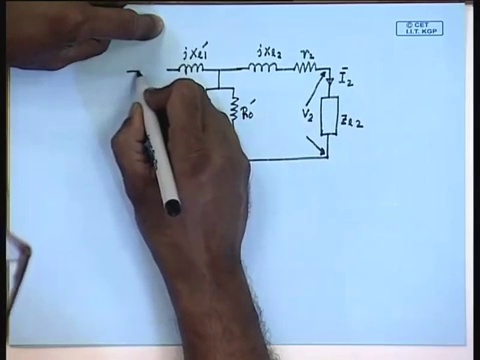 © CET
I.I.T. KGP
jxl1' jxl2 r2 Ī2
R0' V2 Zl2